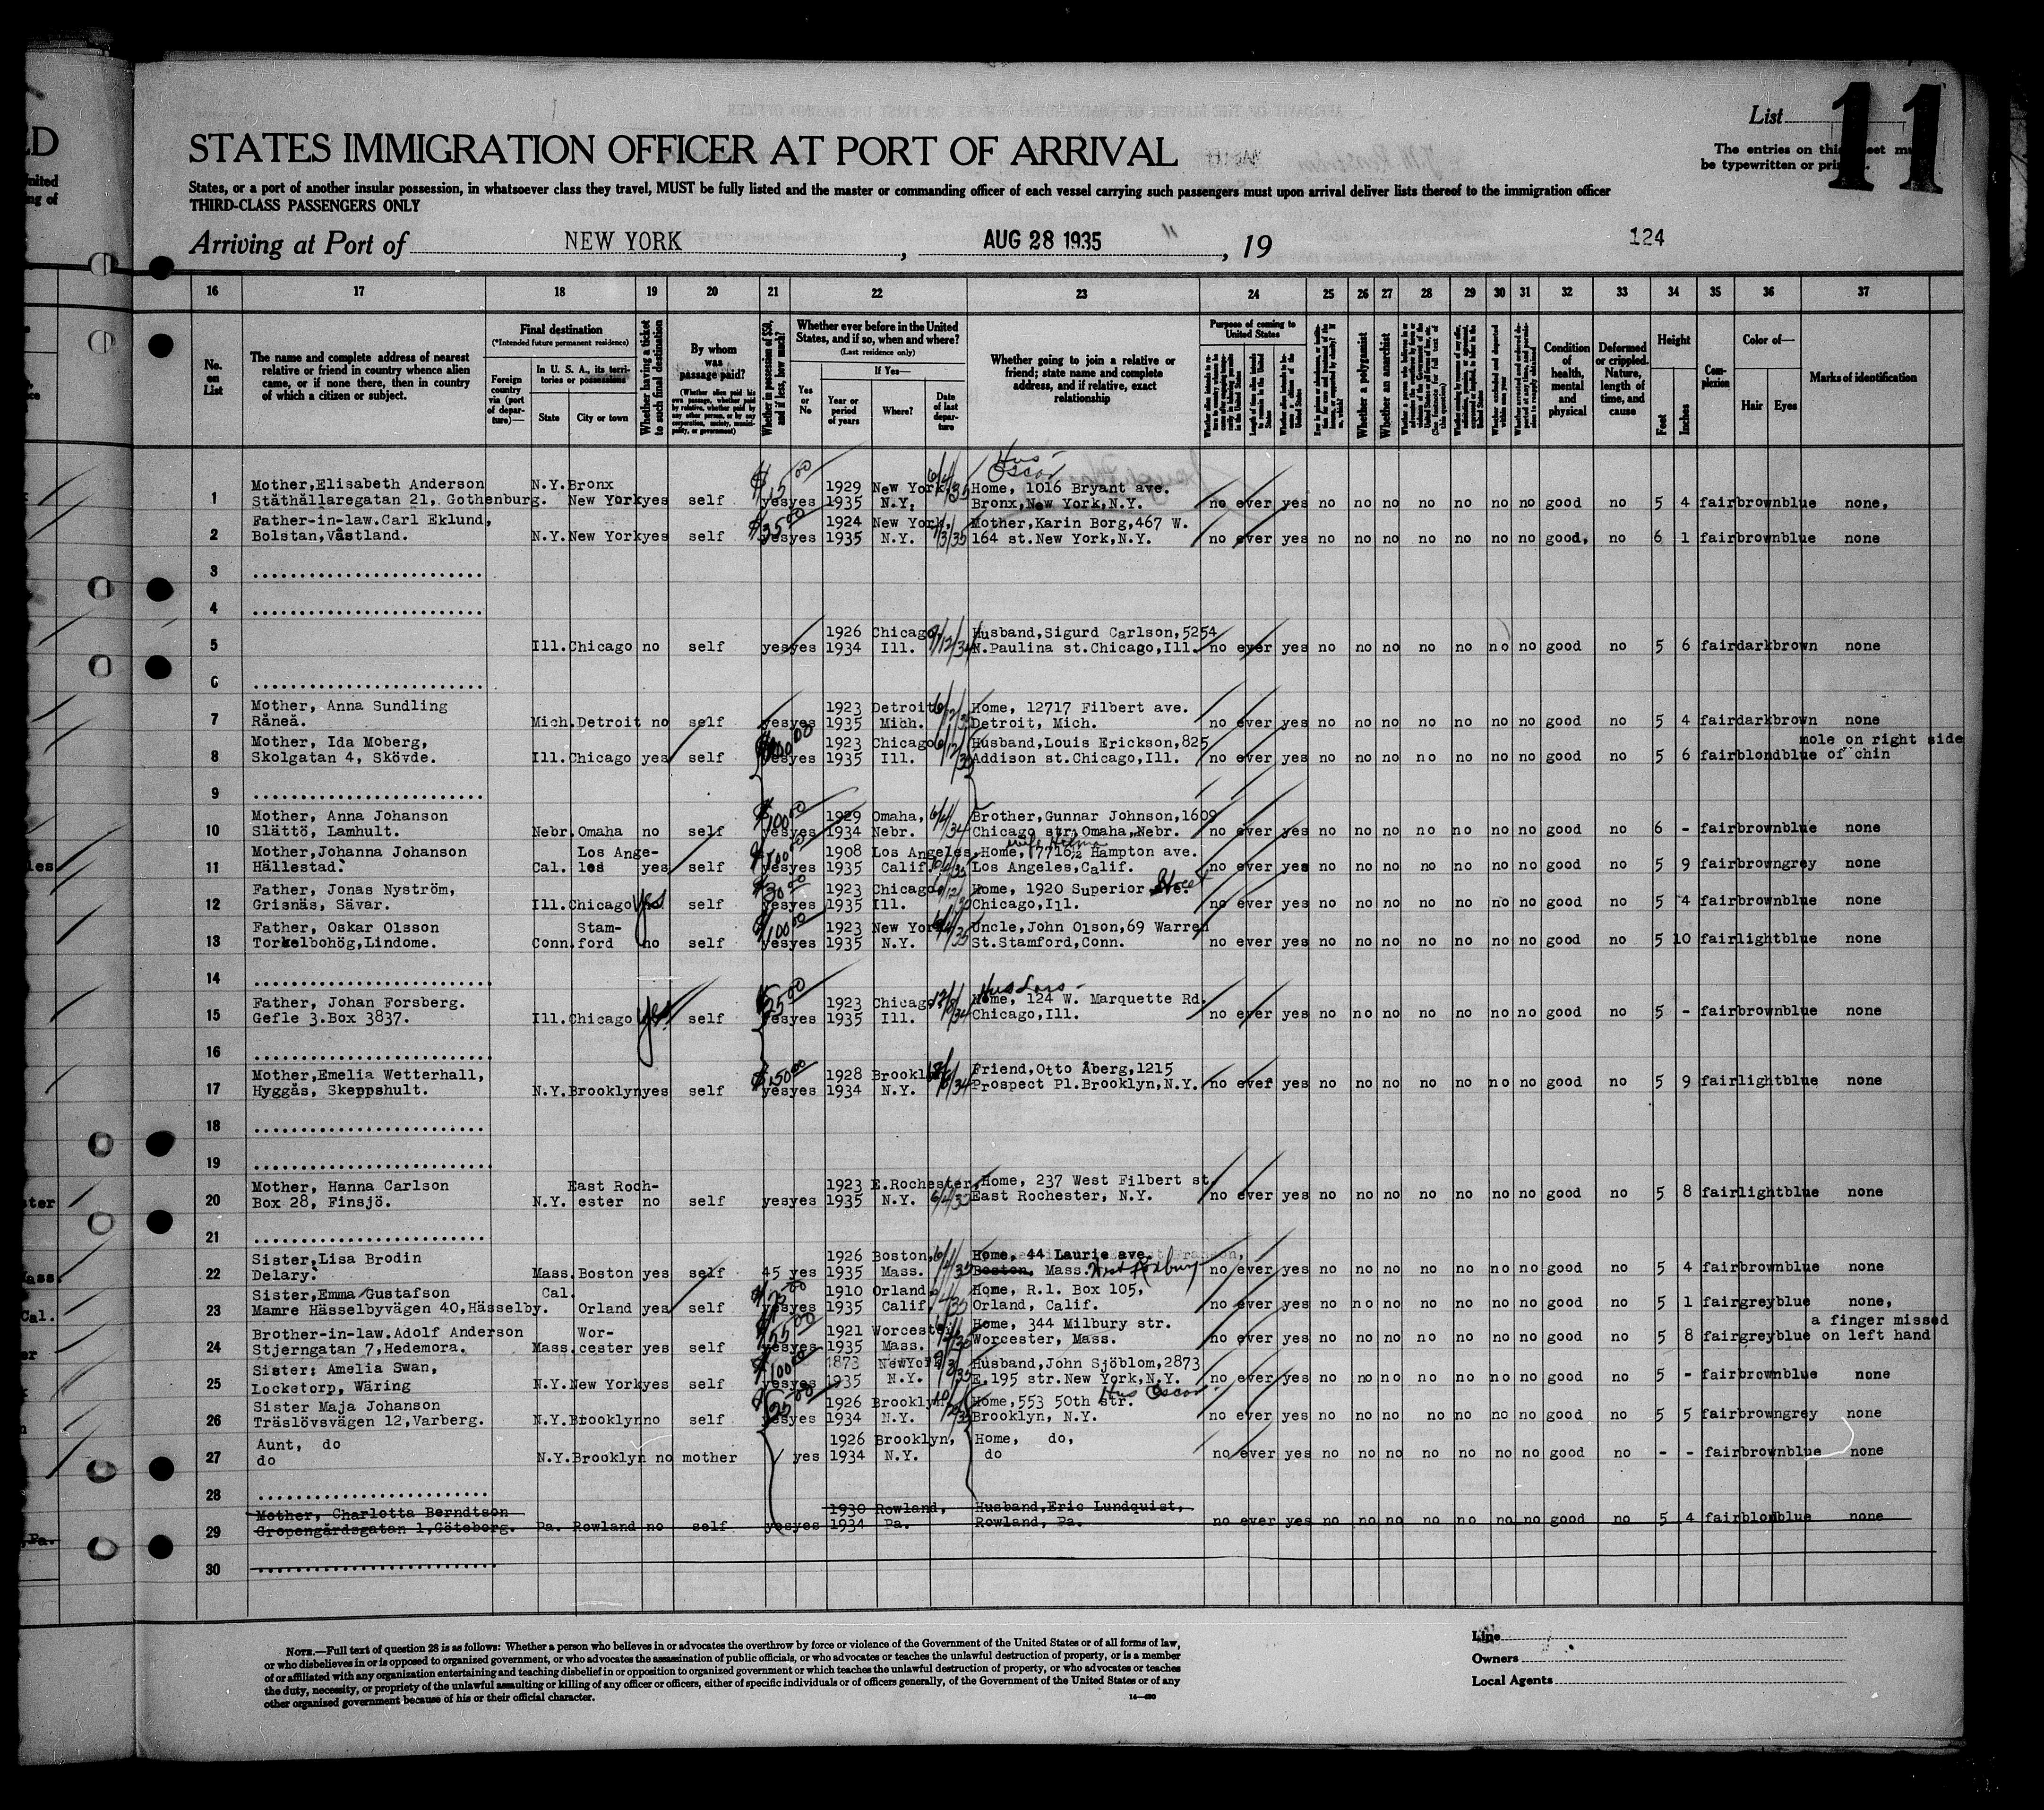 List 11
The entries on this sheet must
be typewritten or printed.
STATES IMMIGRATION OFFICER AT PORT OF ARRIVAL
States, or a port of another insular possession, in whatsoever class they travel, MUST be fully listed and the master or commanding officer of each vessel carrying such passengers must upon arrival deliver lists thereof to the immigration officer
THIRD-CLASS PASSENGERS ONLY
Arriving at Port of NEW YORK, AUG 28 1935, 19
124
16 17 18 19 20 21 22 23 24 25 26 27 28 29 30 31 32 33 34 35 36 37
No. on List
The name and complete address of nearest relative or friend in country whence alien came, or if none there, then in country of which a citizen or subject.
Final destination
(*Intended future permanent residence)
Foreign country via (port of departure)—
In U. S. A., its territories or possessions
State
City or town
Whether having a ticket to such final destination
By whom was passage paid?
(Whether alien paid his own passage, whether paid by relative, whether paid by any other person, or by any corporation, society, municipality, or government)
Whether in possession of $50, and if less, how much?
Whether ever before in the United States, and if so, when and where?
(Last residence only)
Yes or No
If Yes—
Year or period of years
Where?
Date of last departure
Whether going to join a relative or friend; state name and complete address, and if relative, exact relationship
Purpose of coming to United States
Whether a polygamist
Whether an anarchist
Condition of health, mental and physical
Deformed or crippled. Nature, length of time, and cause
Height
Feet
Inches
Complexion
Color of—
Hair
Eyes
Marks of identification
Hus -
Oscar
1 Mother,Elisabeth Anderson N.Y. Bronx $15 00 1929 New York 6/4/35 Home, 1016 Bryant ave.
Ståthållaregatan 21, Gothenburg. New York yes self yes yes 1935 N.Y. Bronx,New York,N.Y. no ever yes no no no no no no no good no 5 4 fair brown blue none,
2 Father-in-law.Carl Eklund, $35 00 1924 New York, 7/3/35 Mother,Karin Borg,467 W.
Bolstan,Våstland. N.Y. New York yes self yes yes 1935 N.Y. 164 st.New York,N.Y. no ever yes no no no no no no no good, no 6 1 fair brown blue none
3
4
5 1926 Chicago Husband,Sigurd Carlson,5254
Ill. Chicago no self yes yes 1934 Ill. N.Paulina st.Chicago,Ill. no ever yes no no no no no no no good no 5 6 fair dark brown none
6
7 Mother, Anna Sundling 1923 Detroit Home, 12717 Filbert ave.
Råneå. Mich. Detroit no self yes yes 1935 Mich. Detroit, Mich. no ever yes no no no no no no no good no 5 4 fair dark brown none
8 Mother, Ida Moberg, 1923 Chicago Husband,Louis Erickson,825 mole on right side
Skolgatan 4, Skövde. Ill. Chicago yes self yes yes 1935 Ill. Addison st.Chicago,Ill. no ever yes no no no no no no no good no 5 6 fair blond blue of chin
9
10 Mother, Anna Johanson $100 00 1929 Omaha, 6/4/34 Brother,Gunnar Johnson,1609
Slättö, Lamhult. Nebr. Omaha no self yes yes 1934 Nebr. Chicago str.Omaha,Nebr. no ever yes no no no no no no no good no 6 - fair brown blue none
wife Helma
11 Mother,Johanna Johanson Los Ange- $100 00 1908 Los Angeles, Home, 7716½ Hampton ave.
Hällestad. Cal. les yes self yes yes 1935 Calif. Los Angeles,Calif. no ever yes no no no no no no no good no 5 9 fair brown grey none
12 Father, Jonas Nyström, $30 00 1923 Chicago Home, 1920 Superior Street
Grisnäs, Sävar. Ill. Chicago yes self yes yes 1935 Ill. Chicago,Ill. no ever yes no no no no no no no good no 5 4 fair brown blue none
13 Father, Oskar Olsson Stam- $100 00 1923 New York Uncle,John Olson,69 Warren
Torkelbohög,Lindome. Conn. ford no self yes yes 1935 N.Y. St.Stamford,Conn. no ever yes no no no no no no no good no 5 10 fair light blue none
14
Hus Lars -
15 Father, Johan Forsberg. $25 00 1923 Chicago Home, 124 W. Marquette Rd.
Gefle 3.Box 3837. Ill. Chicago yes self yes yes 1935 Ill. Chicago,Ill. no ever yes no no no no no no no good no 5 - fair brown blue none
16
17 Mother,Emelia Wetterhall, $50 00 1928 Brooklyn Friend,Otto Åberg,1215
Hyggås, Skeppshult. N.Y. Brooklyn yes self yes yes 1934 N.Y. Prospect Pl.Brooklyn,N.Y. no ever yes no no no no no no no good no 5 9 fair light blue none
18
19
20 Mother, Hanna Carlson East Roch- 1923 E.Rochester, Home, 237 West Filbert st.
Box 28, Finsjö. N.Y. ester no self yes yes 1935 N.Y. East Rochester, N.Y. no ever yes no no no no no no no good no 5 8 fair light blue none
21
22 Sister,Lisa Brodin 1926 Boston, Home, 44 Laurie ave.
Delary. Mass. Boston yes self 45 yes 1935 Mass. Boston, Mass. West Roxbury no ever yes no no no no no no no good no 5 4 fair brown blue none
23 Sister,Emma Gustafson Cal. $75 00 1910 Orland, Home, R.1. Box 105,
Mamre Hässelbyvägen 40,Hässelby. Orland yes self yes yes 1935 Calif. Orland, Calif. no ever yes no no no no no no no good no 5 1 fair grey blue none,
24 Brother-in-law.Adolf Anderson Wor- $55 00 1921 Worcester Home, 344 Milbury str. a finger missed
Stjerngatan 7,Hedemora. Mass. cester yes self yes yes 1935 Mass. Worcester, Mass. no ever yes no no no no no no no good no 5 8 fair grey blue on left hand
25 Sister; Amelia Swan, $100 00 1873 NewYork Husband,John Sjöblom,2873
Locketorp, Wäring N.Y. New York yes self yes yes 1935 N.Y. E.195 str.New York,N.Y. no ever yes no no no no no no no good no 5 - fair brown blue none
Hus Oscar
26 Sister Maja Johanson $25 00 1926 Brooklyn Home,553 50th str.
Träslövsvägen 12,Varberg. N.Y. Brooklyn no self yes yes 1934 N.Y. Brooklyn, N.Y. no ever yes no no no no no no no good no 5 5 fair brown grey none
27 Aunt, do 1926 Brooklyn, Home, do,
do N.Y. Brooklyn no mother yes 1934 N.Y. do no ever yes no no no no no no no good no - - fair brown blue none
28
29 Mother, Charlotta Berndtson 1930 Rowland, Husband,Eric Lundquist,
Gropengårdsgatan 1,Göteborg. Pa. Rowland no self yes yes 1934 Pa. Rowland, Pa. no ever yes no no no no no no no good no 5 4 fair blond blue none
30
NOTE.—Full text of question 28 is as follows: Whether a person who believes in or advocates the overthrow by force or violence of the Government of the United States or of all forms of law,
or who disbelieves in or is opposed to organized government, or who advocates the assassination of public officials, or who advocates or teaches the unlawful destruction of property, or is a member
of or affiliated with any organization entertaining and teaching disbelief in or opposition to organized government or which teaches the unlawful destruction of property, or who advocates or teaches
the duty, necessity, or propriety of the unlawful assaulting or killing of any officer or officers, either of specific individuals or of officers generally, of the Government of the United States or of any
other organized government because of his or their official character.
Line
Owners
Local Agents